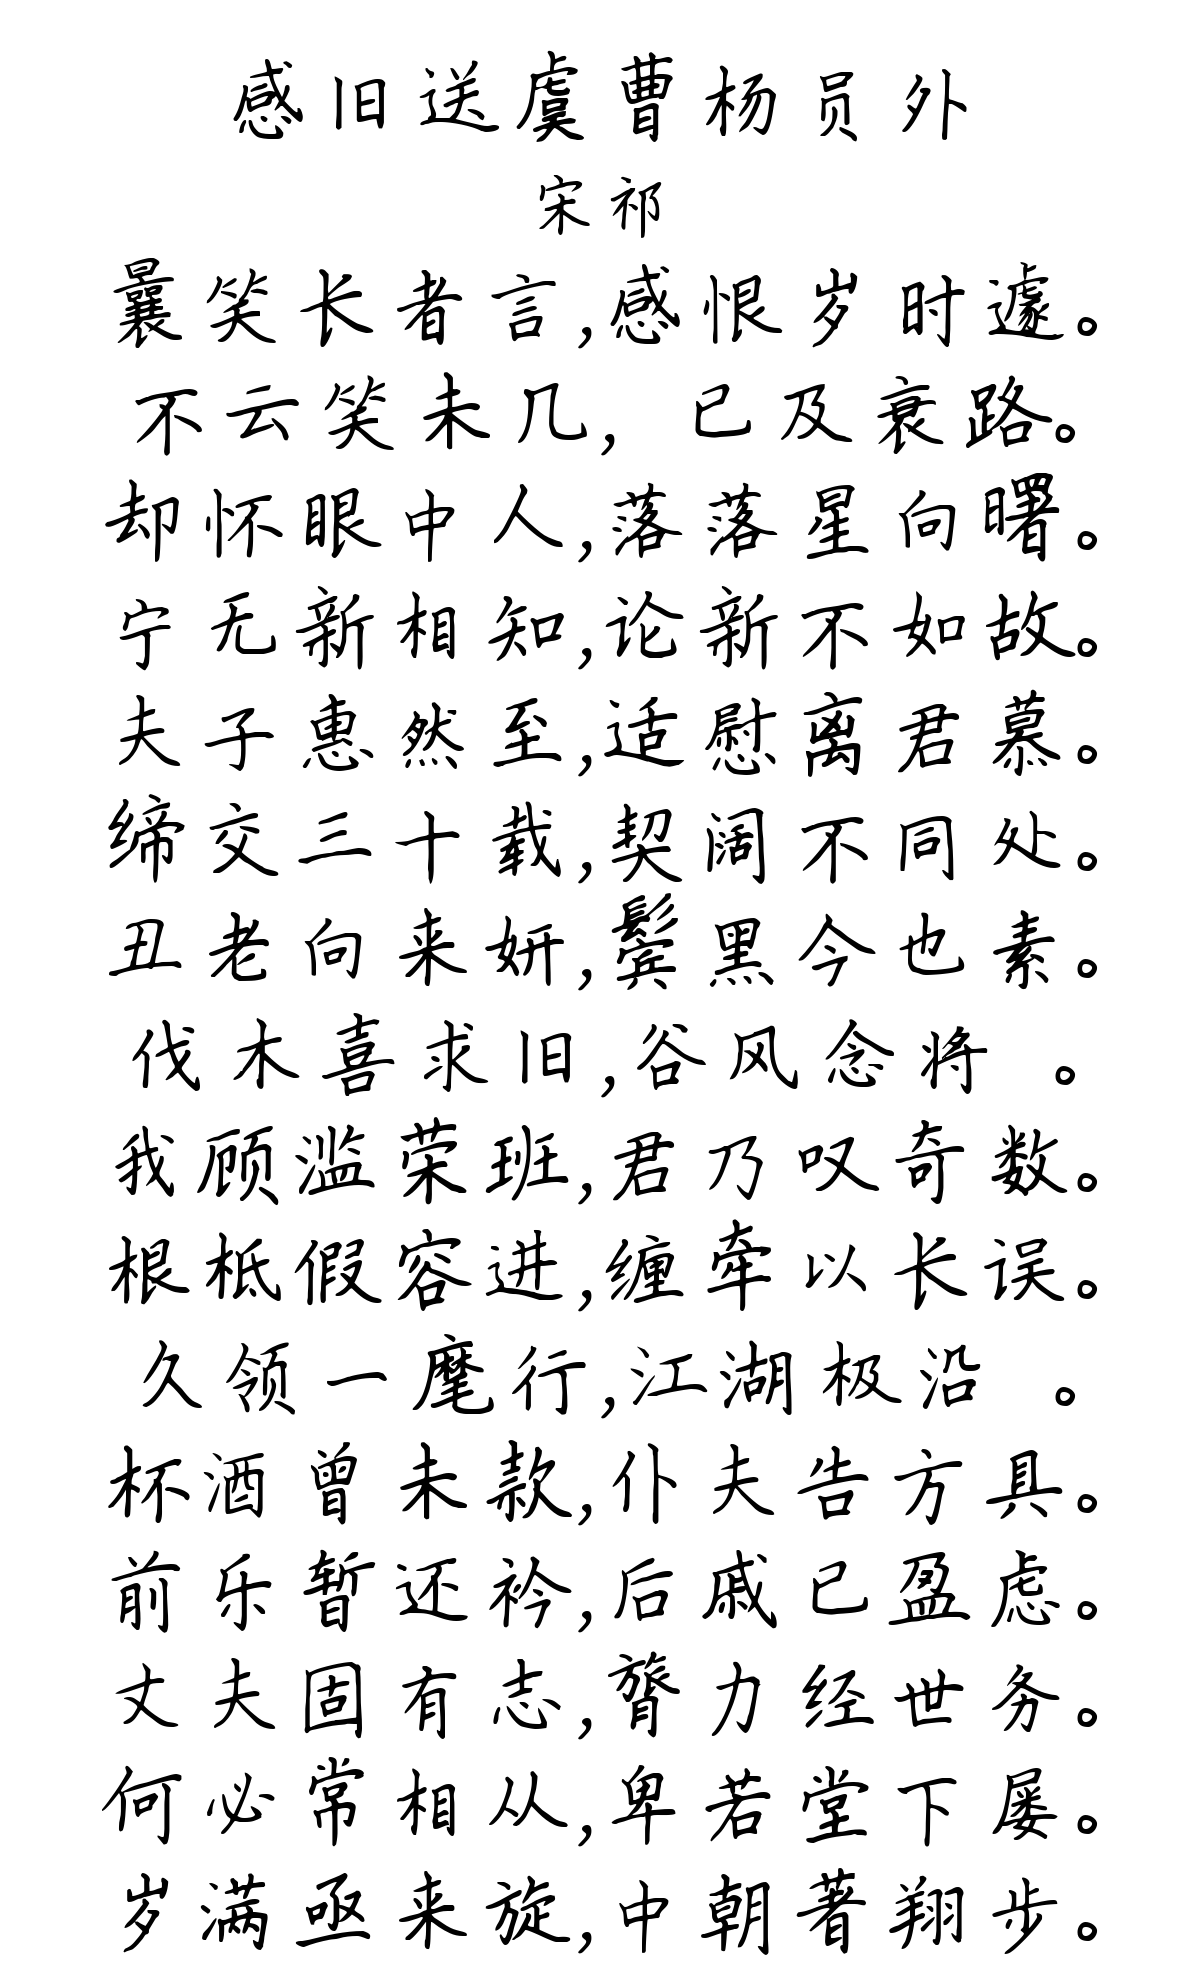 感旧送虞曹杨员外
宋祁
曩笑长者言,感恨岁时遽。
不云笑未几,已及衰路。
却怀眼中人,落落星向曙。
宁无新相知,论新不如故。
夫子惠然至,适慰离君慕。
缔交三十载,契阔不同处。
丑老向来妍,鬓黑今也素。
伐木喜求旧,谷风念将 。
我顾滥荣班,君乃叹奇数。
根柢假容进,缠牵以长误。
久领一麾行,江湖极沿 。
杯酒曾未款,仆夫告方具。
前乐暂还衿,后戚已盈虑。
丈夫固有志,膂力经世务。
何必常相从,卑若堂下屡。
岁满亟来旋,中朝著翔步。